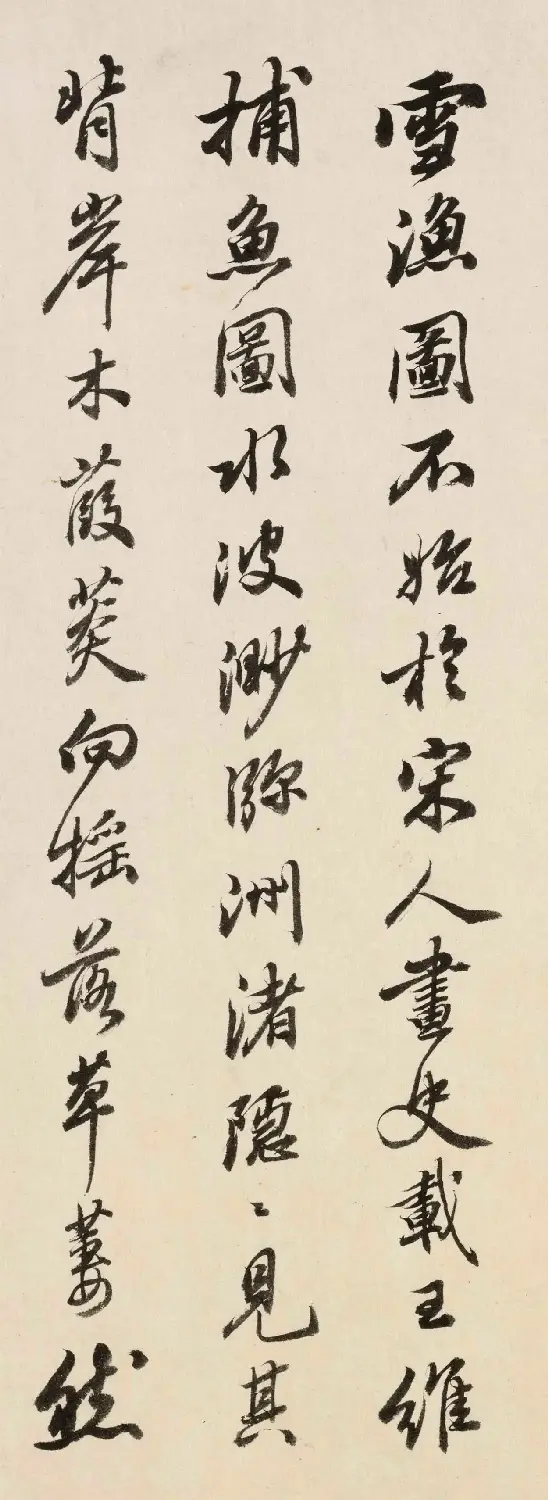 雪漁圖不始於宋人畫史載王維
捕魚圖水波渺瀰洲渚隱〻見其
背岸木葭菼向搖落草萋然